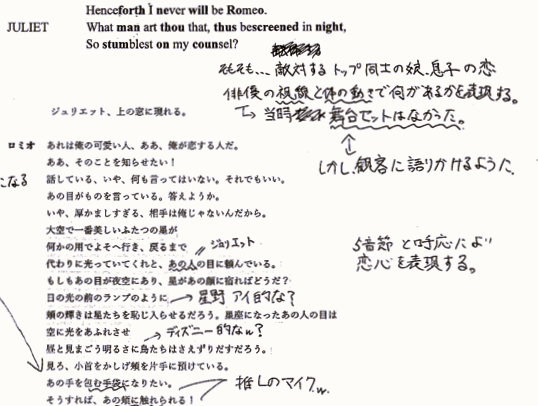 Henceforth I never will be Romeo.
JULIET What man art thou that, thus bescreened in night,
So stumblest on my counsel?
そもそも... 敵対するトップ同士の娘、息子の恋
俳優の視線と体の動きで何があるかを表現する。
→ 当時 舞台セットはなかった。
しかし、観客に語りかけるような
ジュリエット、上の窓に現れる。
ロミオ あれは俺の可愛い人、ああ、俺が恋する人だ。
ああ、そのことを知らせたい！
になる
話している、いや、何も言ってはいない。それでもいい。
あの目がものを言っている。答えようか。
いや、厚かましすぎる、相手は俺じゃないんだから。
大空で一番美しいふたつの星が
何かの用でよそへ行き、戻るまで
〃ジュリエット
代わりに光っていてくれと、あの人の目に頼んでいる。
5音節と呼応により
恋心を表現する。
もしもあの目が夜空にあり、星があの顔に宿ればどうだ？
日の光の前のランプのように → 星野アイ的な？
頬の輝きは星たちを恥じ入らせるだろう。星座になったあの人の目は
空に光をあふれさせ → ディズニー的なw？
昼と見まごう明るさに鳥たちはさえずりだすだろう。
見ろ、小首をかしげ頬を片手に預けている。
あの手を包む手袋になりたい。
推しのマイクw
そうすれば、あの頬に触れられる！